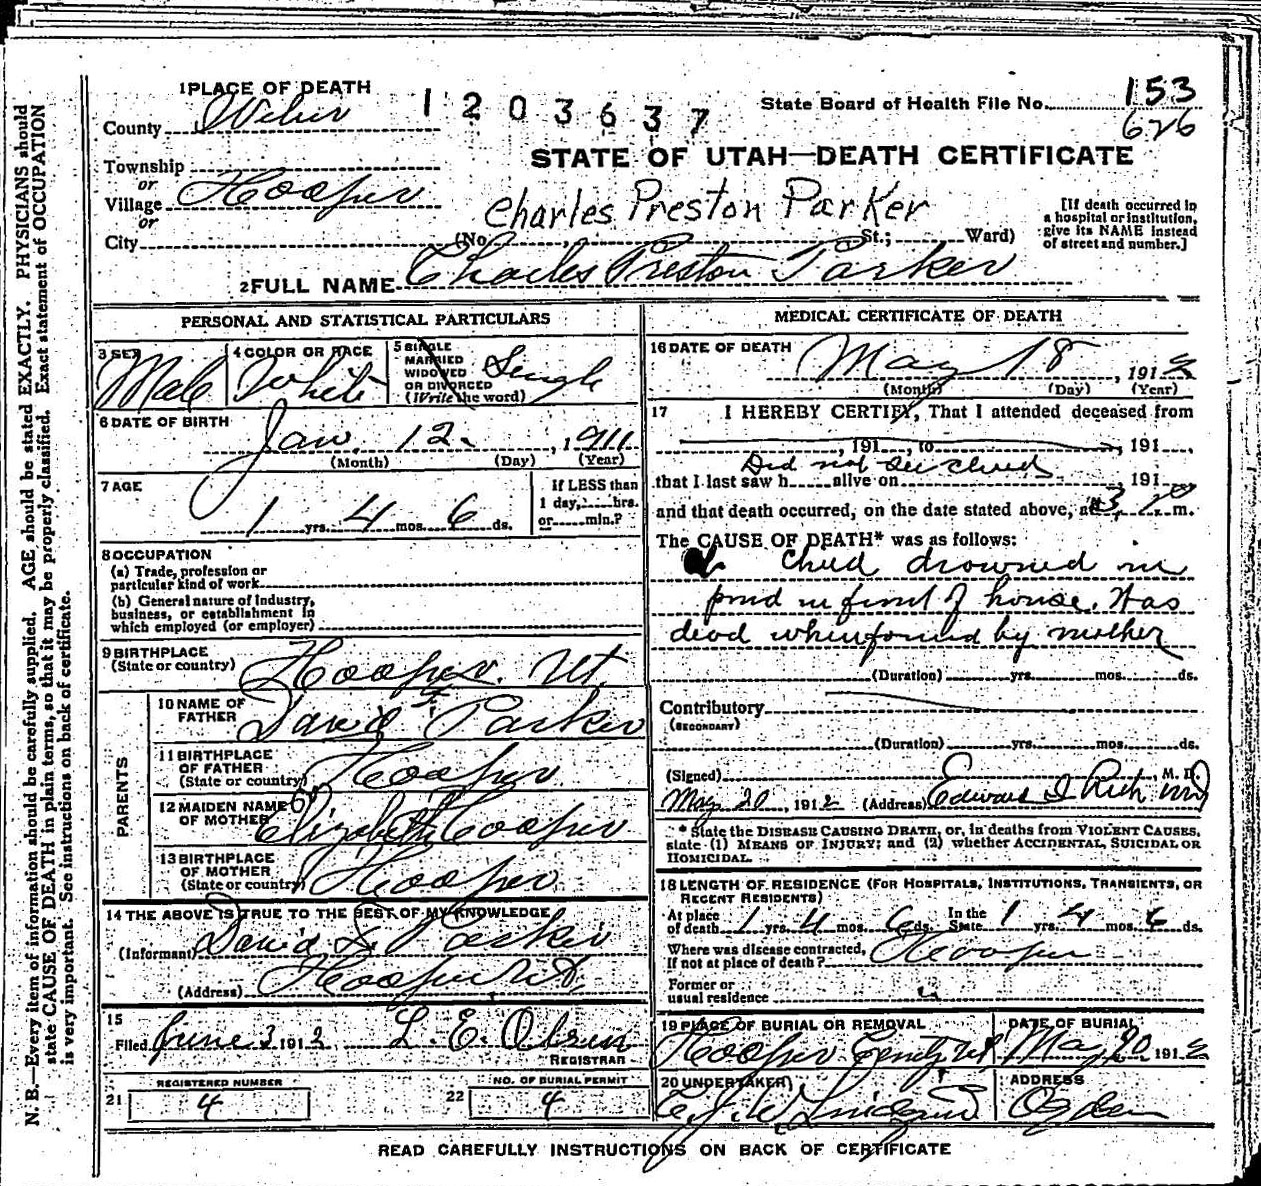 N. B.—Every item of information should be carefully supplied. AGE should be stated EXACTLY. PHYSICIANS should
state CAUSE OF DEATH in plain terms, so that it may be properly classified. Exact statement of OCCUPATION
is very important. See instructions on back of certificate.
1 PLACE OF DEATH
1203637
State Board of Health File No. 153
626
County Weber
STATE OF UTAH—DEATH CERTIFICATE
Township
or
Village Hooper
or
City
Charles Preston Parker
(No. , St.; Ward)
[If death occurred in
a hospital or institution,
give its NAME instead
of street and number.]
2 FULL NAME Charles Preston Parker
PERSONAL AND STATISTICAL PARTICULARS
3 SEX
Male
4 COLOR OR RACE
White
5 SINGLE
MARRIED
WIDOWED
OR DIVORCED
(Write the word)
Single
6 DATE OF BIRTH
Jan. 12. , 1911
(Month) (Day) (Year)
7 AGE
1 yrs. 4 mos. 6 ds.
If LESS than
1 day, hrs.
or min.?
8 OCCUPATION
(a) Trade, profession or
particular kind of work
(b) General nature of industry,
business, or establishment in
which employed (or employer)
9 BIRTHPLACE
(State or country) Hooper. Ut.
PARENTS
10 NAME OF
FATHER David Parker
11 BIRTHPLACE
OF FATHER
(State or country) Hooper
12 MAIDEN NAME
OF MOTHER Elizabeth Cooper
13 BIRTHPLACE
OF MOTHER
(State or country) Hooper
14 THE ABOVE IS TRUE TO THE BEST OF MY KNOWLEDGE
(Informant) David Parker
(Address) Hooper Ut.
15
Filed June 3 1912 L. E.
REGISTRAR
REGISTERED NUMBER
21 4
NO. OF BURIAL PERMIT
22 4
MEDICAL CERTIFICATE OF DEATH
16 DATE OF DEATH
May 18 , 1912
(Month) (Day) (Year)
17 I HEREBY CERTIFY, That I attended deceased from
, 191 , to , 191 ,
Did not see child
that I last saw h alive on , 191
and that death occurred, on the date stated above, at 3, P. m.
The CAUSE OF DEATH* was as follows:
Child drowned in
pond in front of house. Was
dead when found by mother
(Duration) yrs. mos. ds.
Contributory
(SECONDARY)
(Duration) yrs. mos. ds.
(Signed) , M. D.
May 20, 1912 (Address) Edward I Rich MD
* State the DISEASE CAUSING DEATH, or, in deaths from VIOLENT CAUSES,
state (1) MEANS OF INJURY; and (2) whether ACCIDENTAL, SUICIDAL OR
HOMICIDAL.
18 LENGTH OF RESIDENCE (FOR HOSPITALS, INSTITUTIONS, TRANSIENTS, OR
RECENT RESIDENTS)
At place
of death 1 yrs. 4 mos. 6 ds.
In the
State 1 yrs. 4 mos. 6 ds.
Where was disease contracted,
If not at place of death? Hooper
Former or
usual residence
19 PLACE OF BURIAL OR REMOVAL
Hooper Ut
DATE OF BURIAL
May 20 1912
20 UNDERTAKER
ADDRESS
Ogden
READ CAREFULLY INSTRUCTIONS ON BACK OF CERTIFICATE